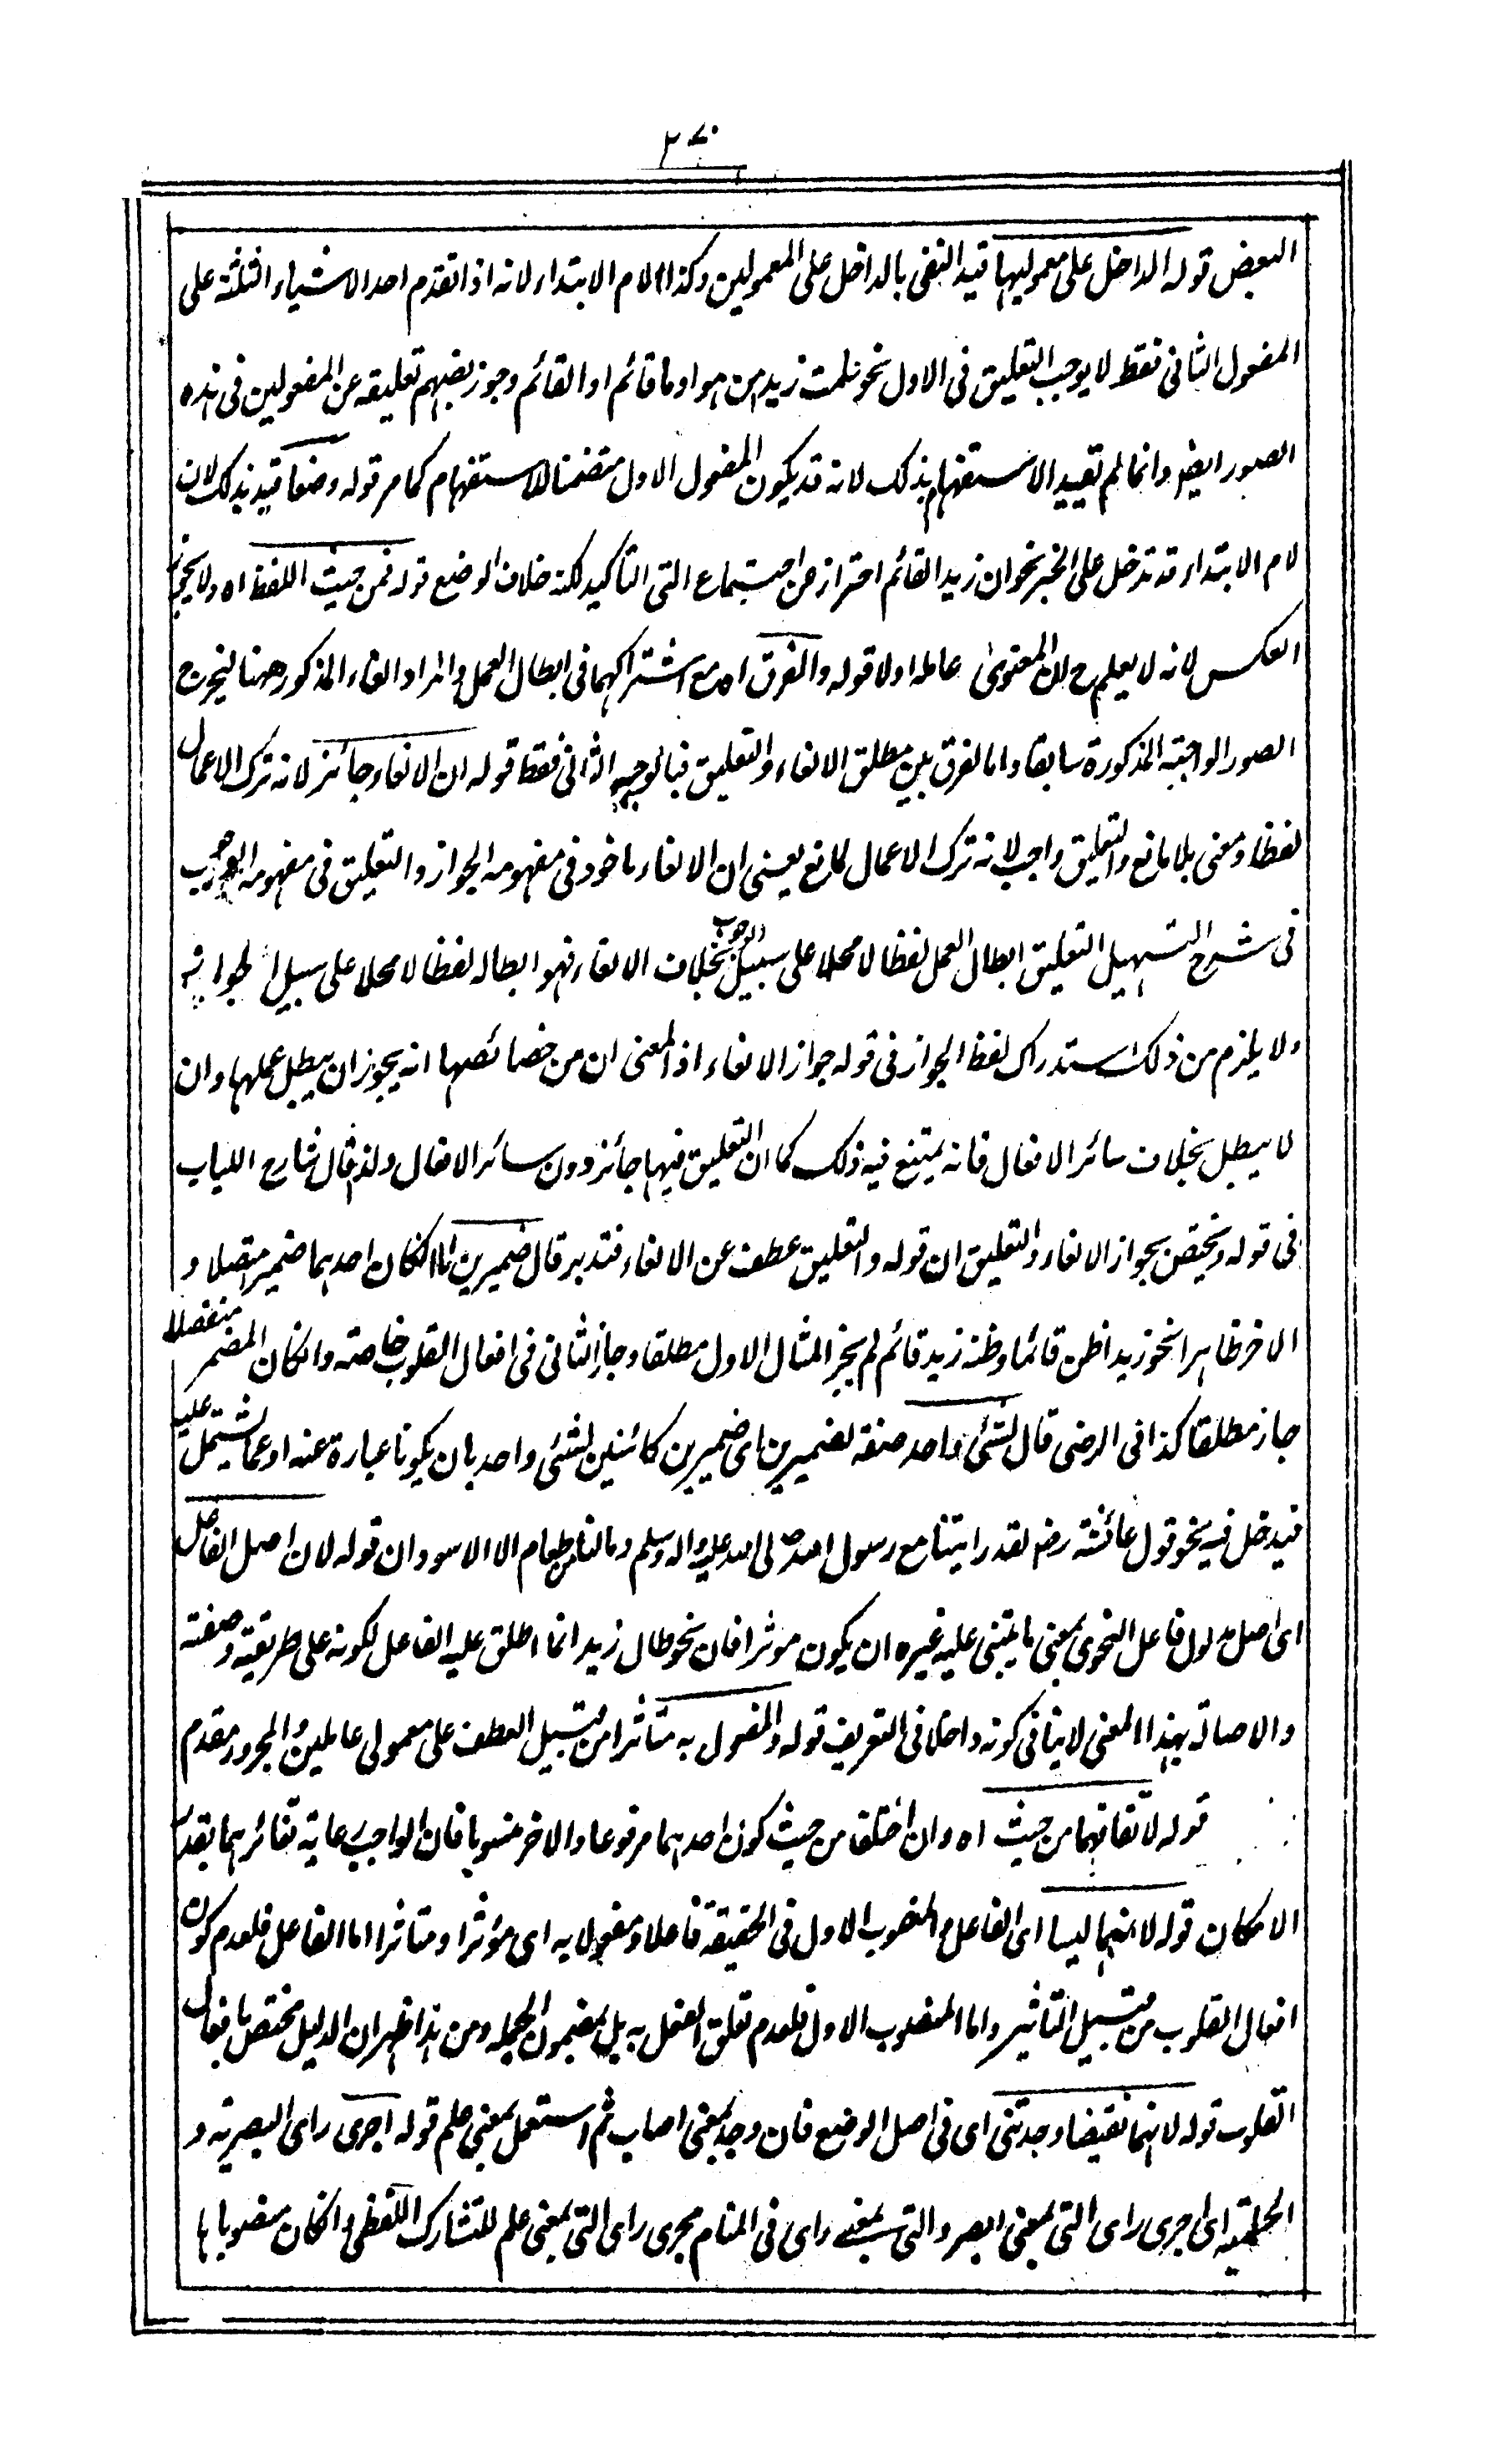 ٢٧٠
البعض قوله الداخل على معموليها قيد النفى بالداخل على المعمولين وكذا لام الابتداء لانه اذا تقدم احد الاشياء الثلثة على
المفعول الثانى فقط لا يوجب التعليق فى الاول نحو علمت زيدا من هو او ما قائم او القائم وجوز بعضهم تعليقه عن المفعولين فى هذه
الصور ايضا وانما لم تقييد الاستفهام بذلك لانه قد يكون المفعول الاول متضمنا للاستفهام كما مر قوله وضعا قيد بذلك لان
لام الابتداء قد تدخل على الخبر نحو ان زيدا لقائم احترازا عن اجتماع التى التأكيد لكنه خلاف الوضع قوله فمن حيث اللفظ اه ولا يجوز
العكس لانه لا يعلم ح ان المعنوى عامله اولا قوله والفرق اه مع اشتراكهما فى ابطال العمل والمراد الغاء المذكور ههنا ليخرج
الصور الواجبة المذكورة سابقا واما الفرق بين مطلق الالغاء والتعليق فبالوجه الثانى فقط قوله ان الالغاء جائز لانه ترك الاعمال
لفظا ومعنى بلا مانع والتعليق واجب لانه ترك الاعمال لمانع يعنى ان الالغاء ماخوذ فى مفهومه الجواز والتعليق فى مفهومه الوجوب
فى شرح التسهيل التعليق ابطال العمل لفظا لا محلا على سبيل الوجوب بخلاف الالغاء فهو ابطاله لفظا لا محلا على سبيل الجواز
ولا يلزم من ذلك استدراك لفظ الجواز فى قوله جواز الالغاء اذ المعنى ان من خصائصها انه يجوز ان يبطل عملها وان
لا يبطل بخلاف سائر الافعال فانه يمتنع فيه ذلك كما ان التعليق فيها جائز دون سائر الافعال ولذا قال شارح اللباب
فى قوله ويختص بجواز الالغاء والتعليق ان قوله والتعليق عطف عن الالغاء فتدبر قال ضميرين اما اذا كان احدهما ضميرا متصلا و
الاخر ظاهرا نحو زيدا ظن قائما وظنه زيد قائم لم يجز المثال الاول مطلقا وجاز الثانى فى افعال القلوب خاصة وان كان المضمر منفصلا
جاز مطلقا كذا فى الرضى قال لشئ واحد صفة لضميرين اى ضميرين كائنين لشئ واحد بان يكونا عبارة عنه او عما يشتمل عليه
فيدخل فيه نحو قول عائشة رض لقد رايتنا مع رسول الله صلى الله عليه واله وسلم وما لنا من طعام الا الاسودان قوله لان اصل الفاعل
اى اصل مدلول فاعل النحوى بمعنى ما يبتنى عليه غيره ان يكون موثرا فان نحو طال زيد انما اطلق عليه الفاعل لكونه على طريقته وصفته
والاصالة بهذا المعنى لا ينافى كونه داخلا فى التعريف قوله والمفعول به متأثرا من قبيل العطف على معمولى عاملين والمجرور مقدم
قوله لاتفاقهما من حيث اه وان اختلفا من حيث كون احدهما مرفوعا والاخر منصوبا فان الواجب رعاية تغائرهما بقدر
الامكان قوله لانهما ليسا اى الفاعل والمنصوب الاول فى الحقيقة فاعلا ومفعولا به اى مؤثرا ومتاثرا اما الفاعل فلعدم كون
افعال القلوب من قبيل التأثير واما المنصوب الاول فلعدم تعلق الفعل به بل بمضمون الجملة ومن هذا ظهر ان الدليل مختص بافعال
القلوب قوله لانهما نقيضا وجدتنى اى فى اصل الوضع فان وجد بمعنى اصاب ثم استعمل بمعنى علم قوله اجرى راى البصرية و
الحلمية اى اجرى راى التى بمعنى ابصر والتى بمعنى راى فى المنام مجرى راى التى بمعنى علم للتشارك اللفظى وان كان منصوباها